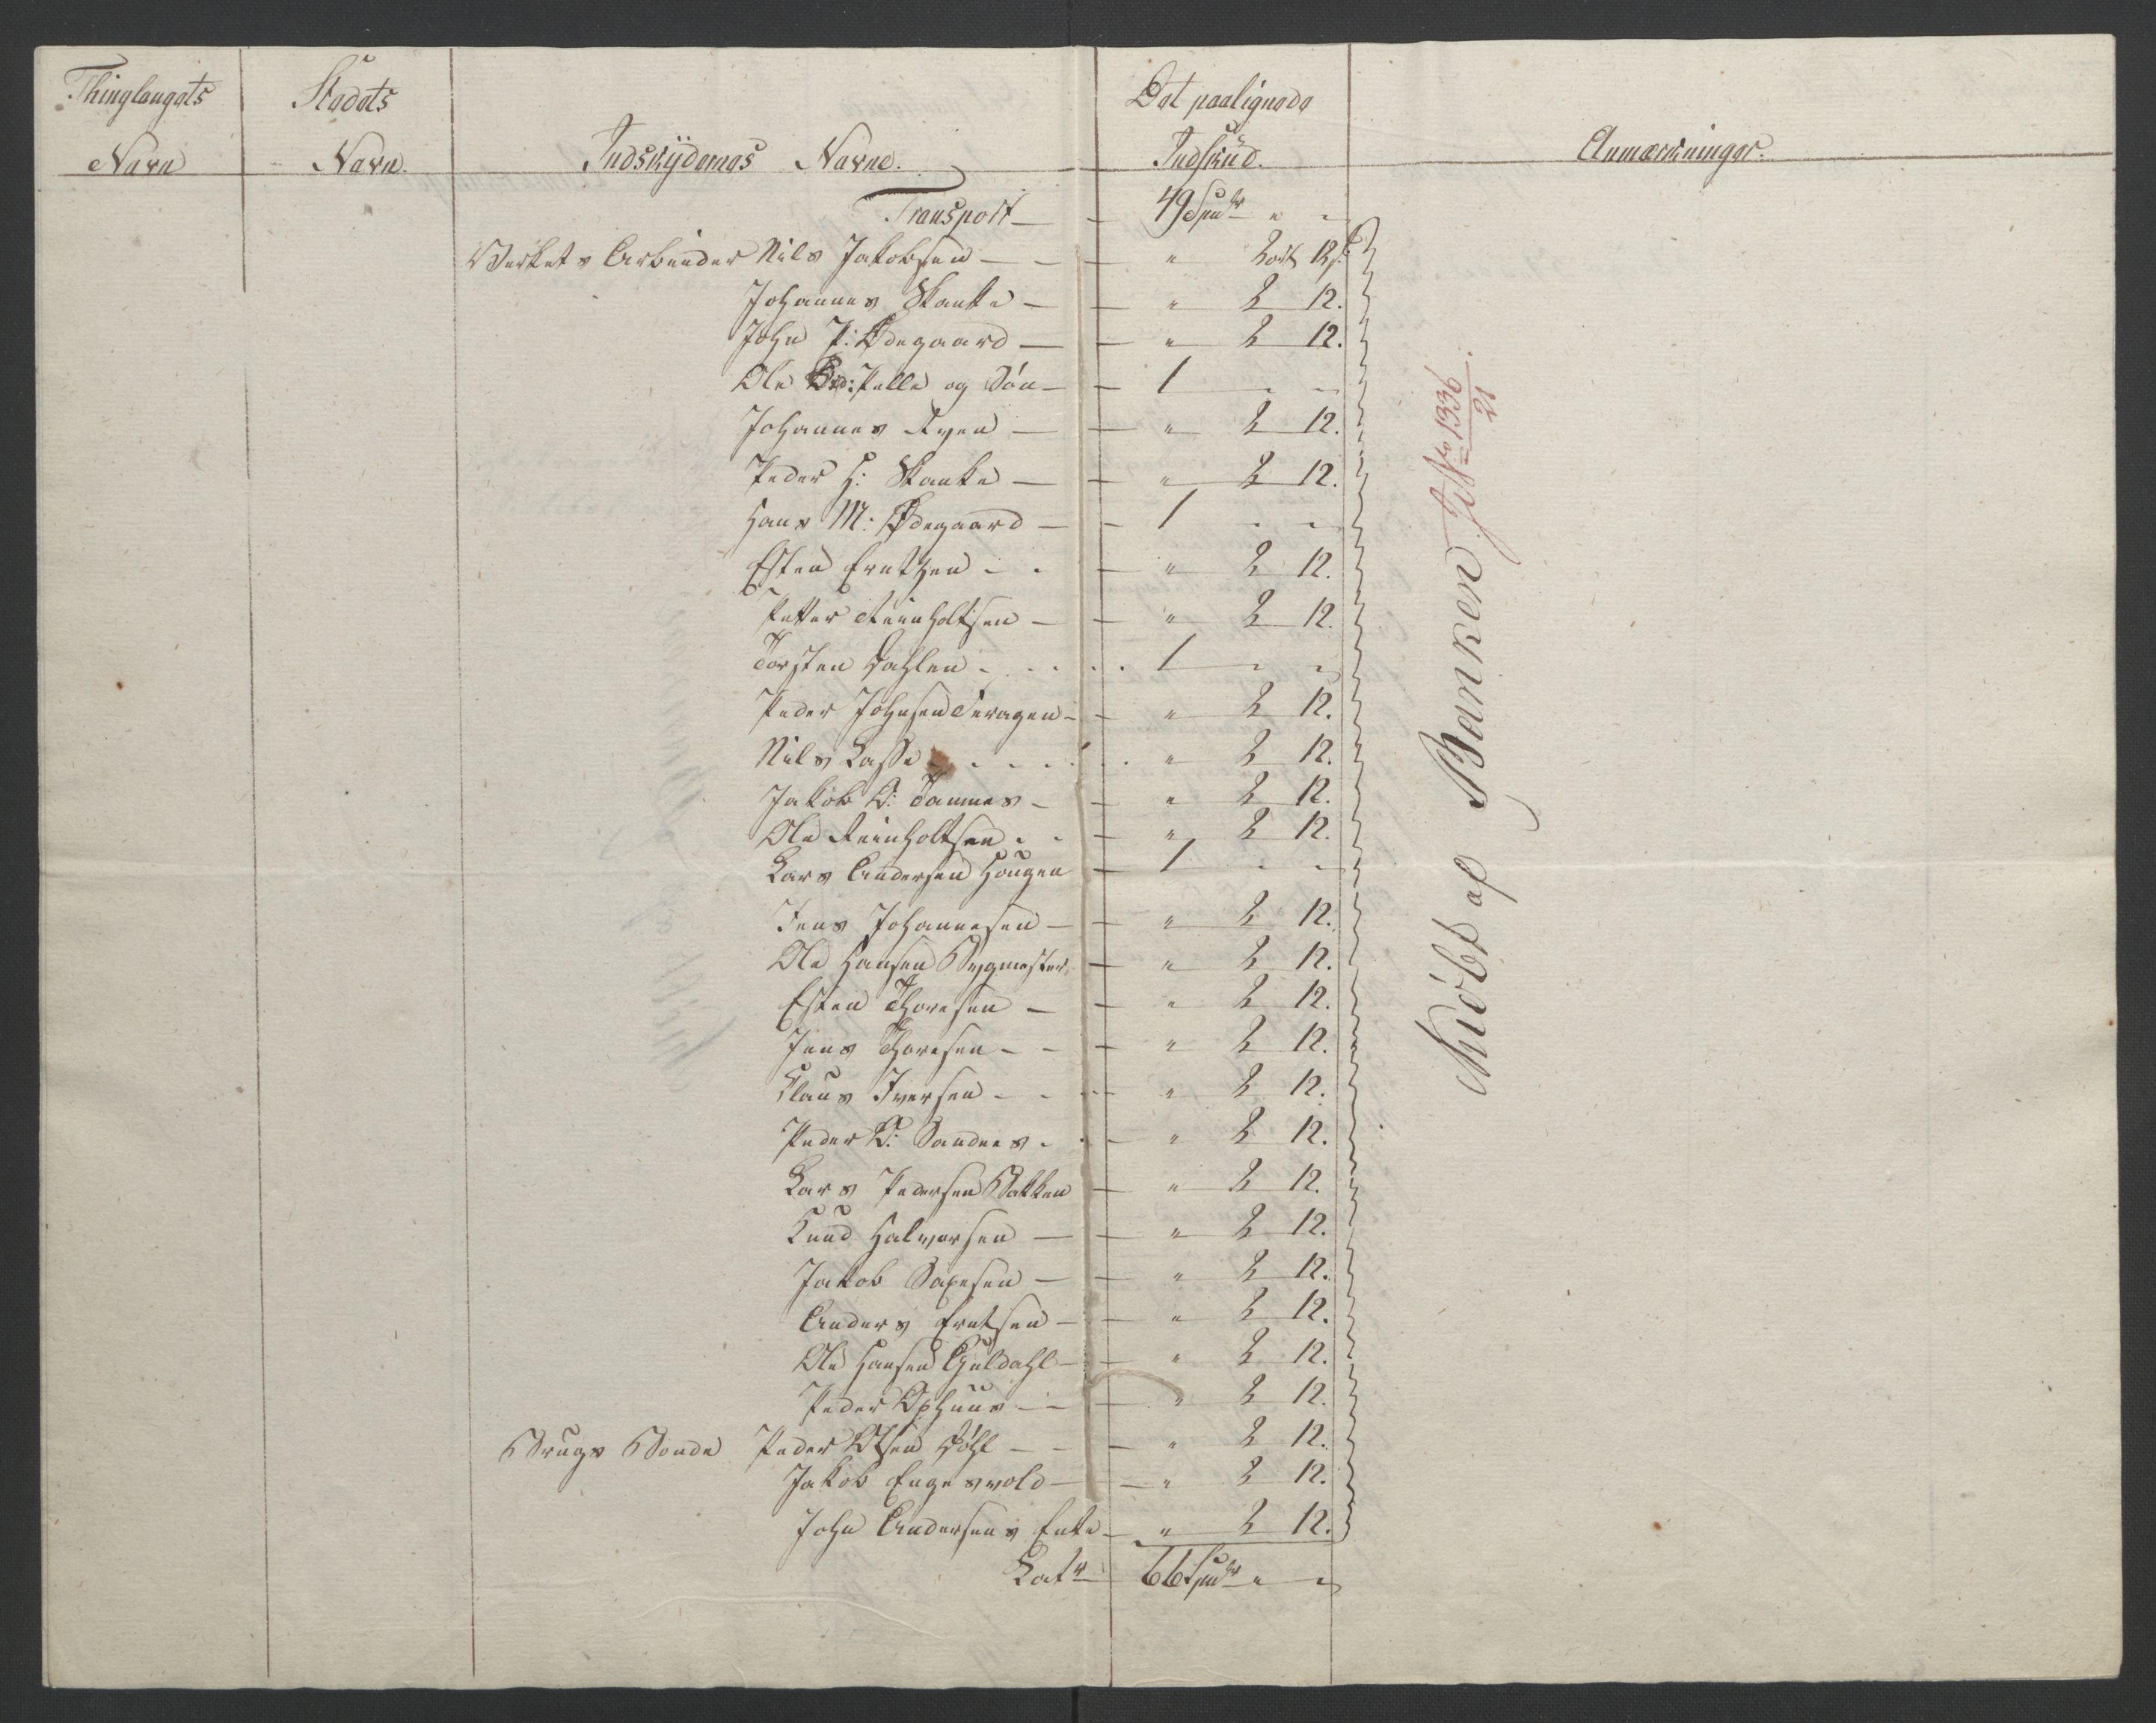 Thinglaugets Navn
Stædets Navn.
Indskydernes Navne.
Det paalignede Indskud.
Anmærkninger.
Transport — 49 Spdr " "
Verkets Arbeider Nils Jakobsen — — " 2 ort 12 s.
Johannes Skanke — " 2 12.
John P: Ødegaard — " 2 12.
Ole Pelle og Søn — 1 " "
Johannes Ryen — " 2 12.
Peder H: Skanke — " 2 12.
Hans M: Ødegaard — 1 " "
Esten Eretzen - - " 2 12.
Petter Reinholtsen — " 2 12.
Torsten Dahlen - - - 1 " "
Peder Johnsen Feragen - " 2 12.
Nils Lasse - - - " 2 12.
Jakob O: Tamnes - " 2 12.
Ole Reinholtsen - - " 2 12.
Lars Andersen Hougen — 1 " "
Jens Johannesen — " 2 12.
Ole Hansen Bygmester — " 2 12.
Esten Thoresen — " 2 12.
Jens Thoresen - - " 2 12.
Klaus Iversen - - " 2 12.
Peder O: Sandnes - " 2 12.
Lars Pedersen Bakken — " 2 12.
Knud Halvorsen — " 2 12.
Jakob Saxesen — " 2 12.
Anders Eretsen — " 2 12.
Ole Hansen Guldahl — " 2 12.
Peder Ophuus — " 2 12.
Brugs Bonde Peder Olsen — - " 2 12.
Jakob Engesvold — " 2 12.
John Andersens Enke — " 2 12.
Latr 66 Spdr " "
Kiøbt af Banken
No 1336/21